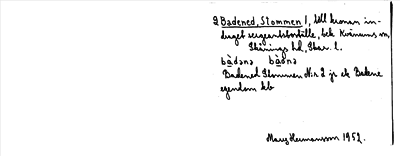 2 Badened, Stommen 1, till kronan in-
draget sergeantsboställe, bek Kvinnums sn,
Skånings hd, Skar. l.
bàdənə bàdnə
Badened Stommen Nr 2 jr ek Badene
egendom hb
Mary Hermansson 1952.